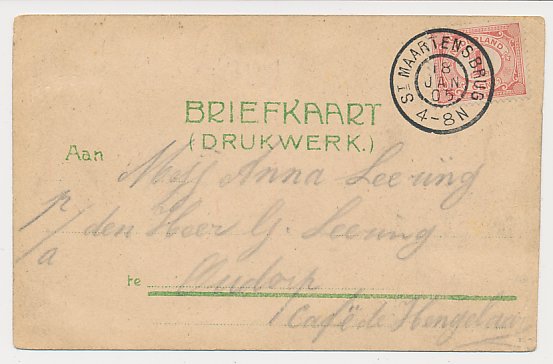 NEDERLAND
ST MAARTENSBRUG
18
JAN
05
4-8N
BRIEFKAART
(DRUKWERK.)
Aan Mejj Anna Leeuing
p/a den Heer G. Leeuing
te Oudorp
Café de Hengelaar